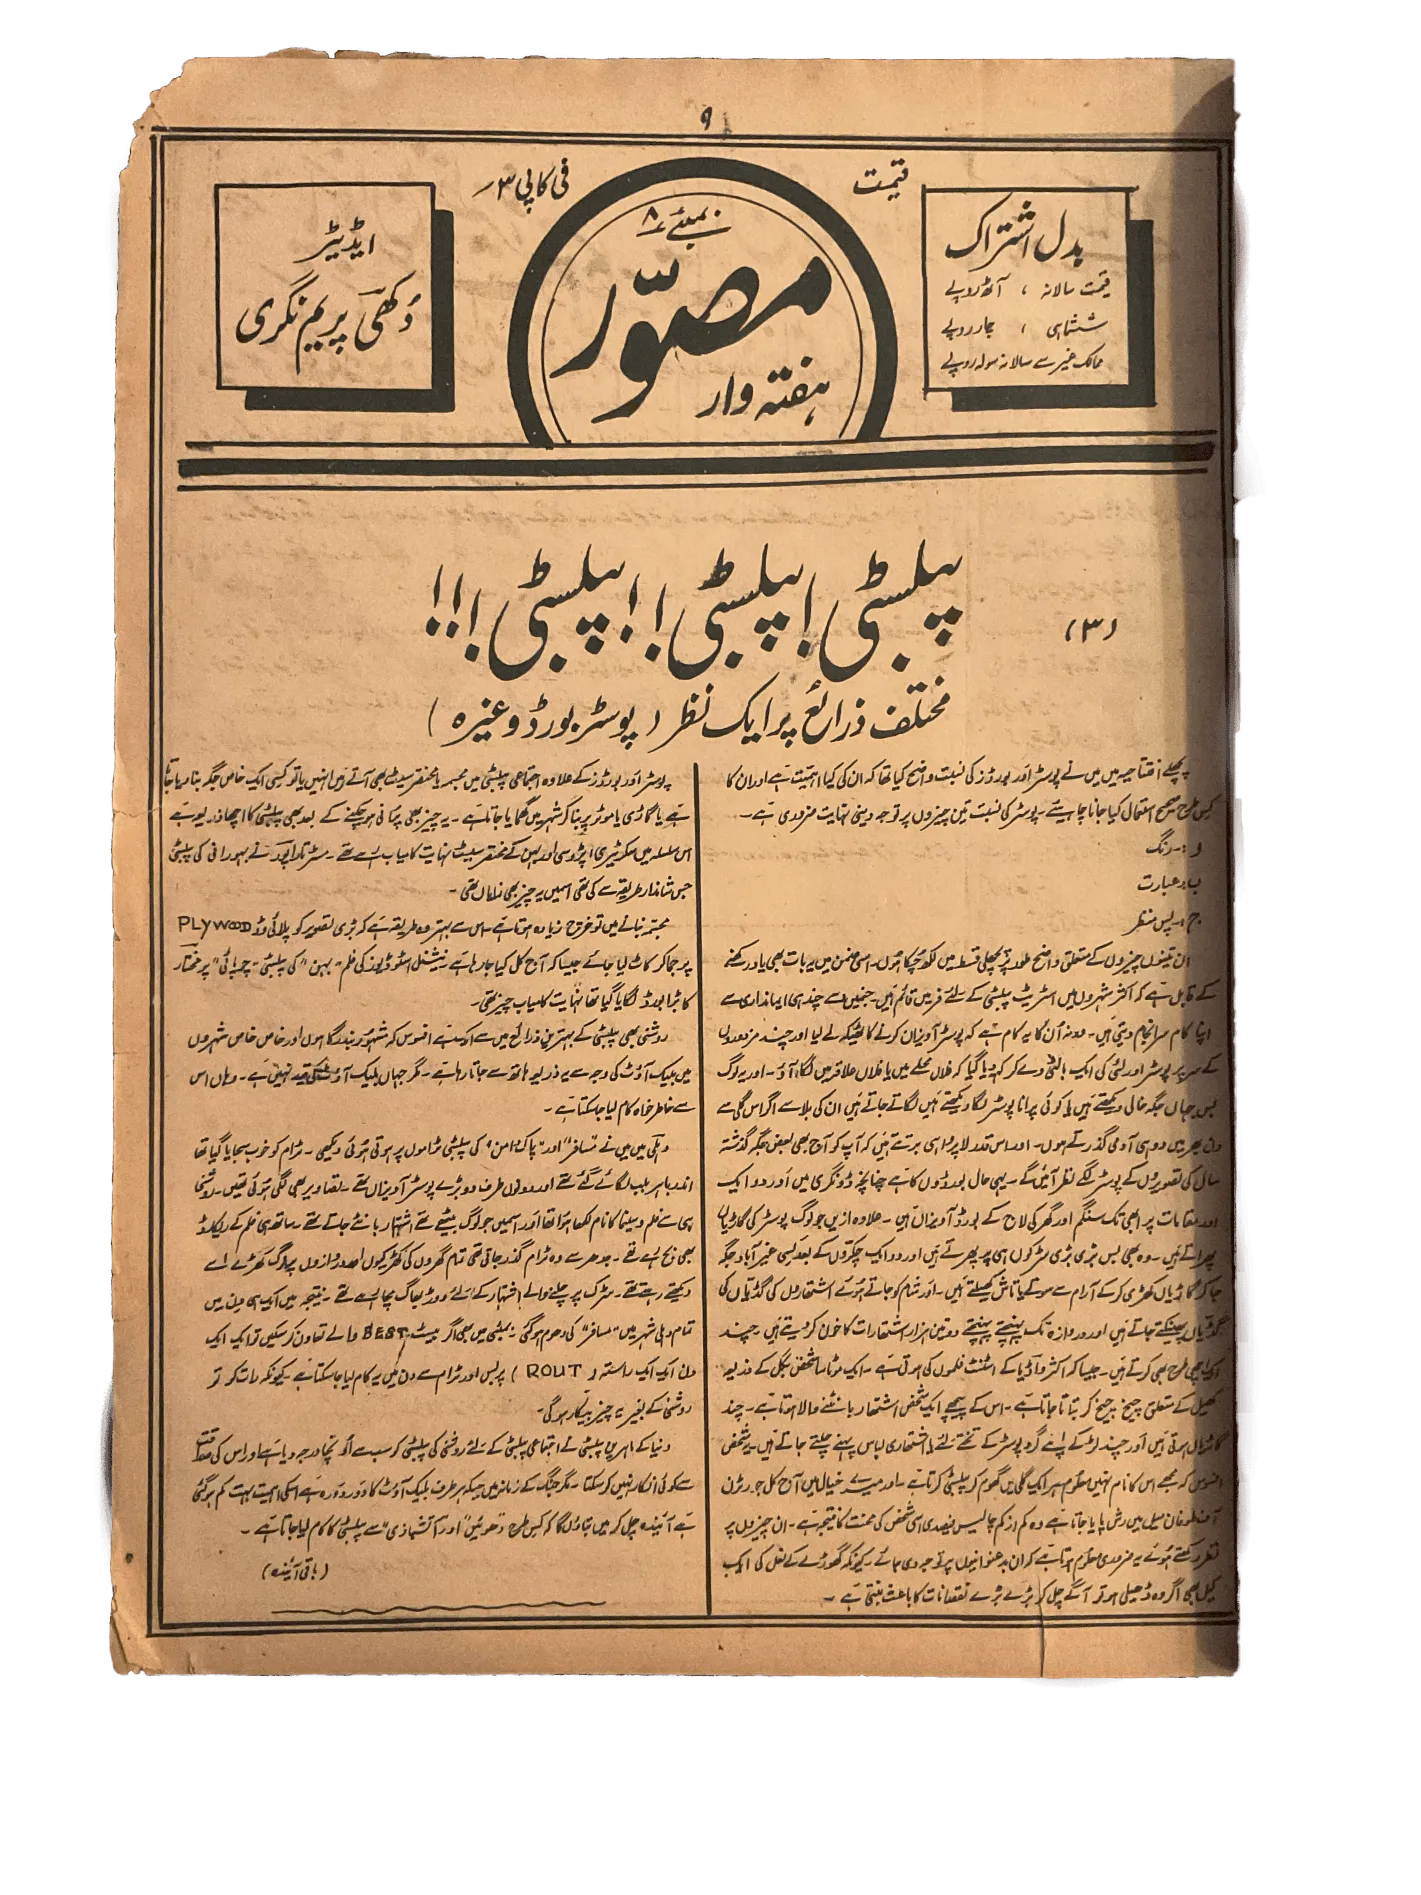 ۹
بدل اشتراک
قیمت سالانہ ، آٹھ روپے
ششماہی ، چار روپے
ممالک غیر سے سالانہ سولہ روپے
قیمت
فی کاپی ۳؍
بمبئی ۸
مصوّر
ہفتہ وار
ایڈیٹر
دُکھی پریم نگری
(۳)
پبلسٹی! پبلسٹی!! پبلسٹی!!!
مختلف ذرائع پر ایک نظر (پوسٹر بورڈ وغیرہ)
پچھلے افتتاحیہ میں میں نے پوسٹر اور بورڈز کی نسبت واضح کیا تھا کہ ان کی کیا اہمیت ہے اور ان کا
کس طرح صحیح استعمال کیا جانا چاہیے۔ پوسٹر کی نسبت تین چیزوں پر توجہ دینی نہایت ضروری ہے۔
رنگ
ب :۔ عبارت
ج :۔ پس منظر
ان تینوں چیزوں کے متعلق واضح طور پر پچھلی قسط میں لکھ چکا ہوں۔ اسی ضمن میں یہ بات بھی یاد رکھنے
کے قابل ہے کہ اکثر شہروں میں اسٹریٹ پبلسٹی کے لئے فرمیں قائم ہیں۔ جنمیں سے چند ہی ایمانداری سے
اپنا کام سرانجام دیتی ہیں۔ ورنہ ان کا یہ کام ہے کہ پوسٹر آویزاں کرنے کا ٹھیکہ لے لیا اور چند مزدوروں
کے سر پر پوسٹر اور لئی کی ایک بالٹی دے کر کہدیا گیا کہ فلاں محلے میں یا فلاں علاقہ میں لگا آؤ۔ اور یہ لوگ
بس جہاں جگہ خالی دیکھتے ہیں یا کوئی پرانا پوسٹر لگا دیکھتے ہیں لگاتے جاتے ہیں ان کی بلا سے اگر اس گلی سے
دن بھر میں دو ہی آدمی گذرتے ہوں۔ اور اس قدر لاپرواہی برتتے ہیں کہ آپ کو آج بھی بعض جگہ گذشتہ
سال کی تصویروں کے پوسٹر لگے نظر آئیں گے۔ یہی حال بورڈوں کا ہے چنانچہ ڈونگری میں اور دو ایک
اور مقامات پر ابھی تک سنگم اور گھر کی لاج کے بورڈ آویزاں ہیں۔ علاوہ ازیں جو لوگ پوسٹر کی گاڑیاں
پھراتے ہیں۔ وہ بھی بس بڑی بڑی سڑکوں ہی پر پھرتے ہیں اور دو ایک چکروں کے بعد کسی غیر آباد جگہ
جا کر گاڑیاں کھڑی کر کے آرام سے سوتے یا تاش کھیلتے ہیں۔ اور شام کو جاتے ہوئے اشتہاروں کی گڈیاں کی
گڈیاں پھینکتے جاتے ہیں اور دروازہ تک پہنچتے پہنچتے دو تین ہزار اشتہارات کا خون کر دیتے ہیں۔ چند
اچھی طرح بھی کرتے ہیں۔ جیسا کہ اکثر واڈیا کے اسٹنٹ فلموں کی ہوتی ہے۔ ایک موٹا سا شخص بگل کے ذریعہ
کھیل کے متعلق چیخ چیخ کر بتاتا جاتا ہے۔ اس کے پیچھے ایک شخص اشتہار بانٹنے والا ہوتا ہے۔ چند
گاڑیاں ہوتی ہیں اور چند لڑکے اپنے گرد پوسٹر کے تختے لئے یا اشتہاری لباس پہنے چلتے جاتے ہیں۔ یہ شخص
افسوس کہ مجھے اس کا نام نہیں معلوم ہر ایک گلی میں گھوم کر پبلسٹی کرتا ہے۔ اور میرے خیال میں آج کل جو رٹرن
آف طوفان میل میں رش پایا جاتا ہے وہ کم از کم چالیس فیصدی اسی شخص کی محنت کا نتیجہ ہے۔ ان چیزوں پر
نظر رکھتے ہوئے یہ ضروری معلوم ہوتا ہے کہ ان بدعنوانیوں پر توجہ دی جائے۔ کیونکہ گھوڑے کے نعل کی ایک
کیل بھی اگر وہ ڈھیلی ہو تو آگے چل کر بڑے بڑے نقصانات کا باعث بنتی ہے۔
پوسٹر اور بورڈز کے علاوہ اجتماعی پبلسٹی میں مجسمہ یا مختصر سیٹ بھی آتے ہیں انہیں یا تو کسی ایک خاص جگہ بنا دیا جاتا
ہے یا گاڑی یا موٹر پر بنا کر شہر میں گھمایا جاتا ہے۔ یہ چیز بھی پرانی ہو چکنے کے بعد بھی پبلسٹی کا اچھا ذریعہ ہے
اس سلسلہ میں سکرٹیری اپڑوسی اور بہن کے مختصر سیٹ نہایت کامیاب رہے تھے۔ مسٹر تارا پور نے بہورانی کی پبلسٹی
جس شاندار طریقہ سے کی تھی اسمیں یہ چیز بھی نمایاں تھی۔
مجسمہ بنانے میں تو خرچ زیادہ ہوتا ہے۔ اس سے بہتر وہ طریقہ ہے کہ بڑی تصویر کو پلائی وڈ PLYWOOD
پر جما کر کاٹ لیا جائے جیسا کہ آج کل کیا جا رہا ہے۔ نیشنل اسٹوڈیوز کی فلم "بہن" کی پبلسٹی "چوپاٹی" پر مختار
کا بڑا بورڈ لگایا گیا تھا نہایت کامیاب چیز تھی۔
روشنی بھی پبلسٹی کے بہترین ذرائع میں سے ایک ہے افسوس کہ مشہور بندرگاہوں اور خاص خاص شہروں
میں بلیک آؤٹ کی وجہ سے یہ ذریعہ ہاتھ سے جاتا رہا ہے۔ مگر جہاں بلیک آؤٹ کی قید نہیں ہے۔ وہاں اس
سے خاطر خواہ کام لیا جا سکتا ہے۔
دہلی میں میں نے "مسافر" اور "پاک دامن" کی پبلسٹی ٹراموں پر ہوتی ہوئی دیکھی۔ ٹرام کو خوب سجایا گیا تھا
اندر باہر بلب لگائے گئے تھے اور دونوں طرف دو بڑے پوسٹر آویزاں تھے۔ تصاویر بھی لگی ہوئی تھیں۔ روشنی
ہی سے فلم و سینما کا نام لکھا ہوا تھا اور اسمیں جو لوگ بیٹھے تھے اشتہار بانٹے جاتے تھے ساتھ ہی فلم کے ریکارڈ
بھی بج رہے تھے۔ جدھر سے وہ ٹرام گذر جاتی تھی تمام گھروں کی کھڑکیوں اور دروازوں پر لوگ کھڑے اسے
دیکھتے رہتے تھے۔ سڑک پر چلنے والے اشتہار کے لئے دوڑ بھاگ مچا رہے تھے۔ نتیجہ میں ایک ہی دن میں
تمام دہلی شہر میں "مسافر" کی دھوم ہو گئی۔ بمبئی میں بھی اگر بیسٹ BEST والے تعاون کر سکیں تو ایک ایک
دن ایک ایک راستہ (ROUT) پر بس اور ٹرام سے دن میں یہ کام لیا جا سکتا ہے۔ کیونکہ رات کو تو
روشنی کے بغیر یہ چیز بیکار ہوگی۔
دنیا کے ماہرین پبلسٹی نے اجتماعی پبلسٹی کے لئے روشنی کی پبلسٹی کو سب سے اونچا درجہ دیا ہے اور اس کی
سے کوئی انکار نہیں کر سکتا۔ مگر جنگ کے زمانہ میں جبکہ ہر طرف بلیک آؤٹ کا دور دورہ ہے اسکی اہمیت بہت کم ہو گئی
ہے آئیندہ چل کر میں بتاؤں گا کہ کس طرح "دھوئیں" اور "آتشبازی" سے پبلسٹی کا کام لیا جاتا ہے۔
(باقی آئیندہ)